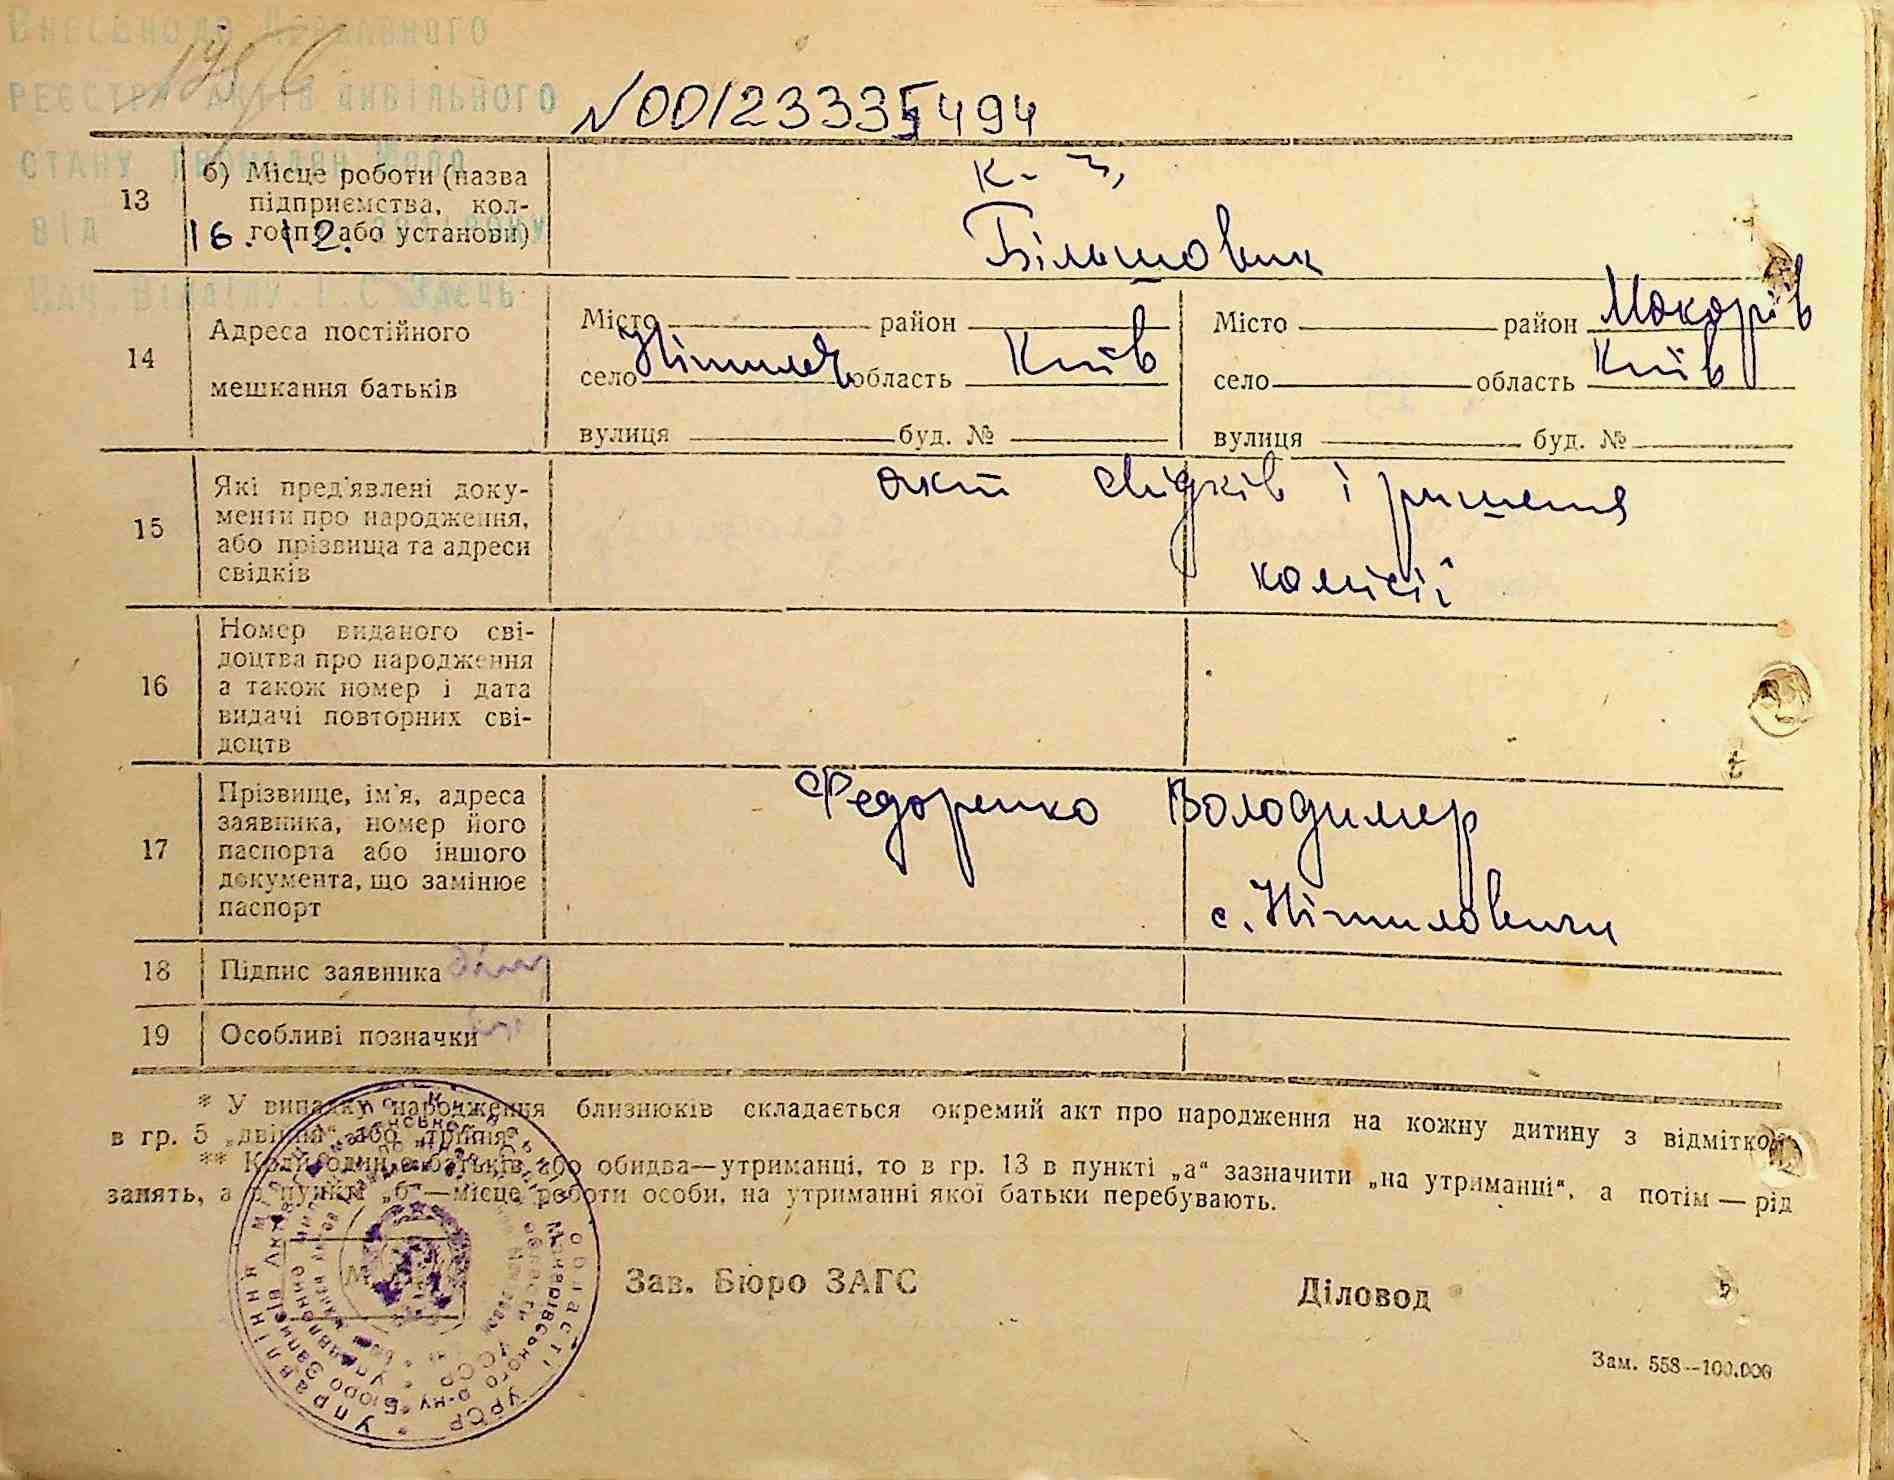 Внесено до Державного
реєстру актів цивільного
стану громадян
від 16. 12. року
Нач. Відділу. І. С. Заєць
N00123335494
13
б) Місце роботи (назва
підприємства, кол-
госпу або установи)
к-з,
Більшовик
14
Адреса постійного
мешкання батьків
Місто район
село Ніжиλов область Київ
вулиця буд. №
Місто район Макарів
село область Київ
вулиця буд. №
15
Які пред'явлені доку-
менти про народження,
або прізвища та адреси
свідків
акт свідків і ришення
комісії
16
Номер виданого сві-
доцтва про народження
а також номер і дата
видачі повторних сві-
доцтв
17
Прізвище, ім'я, адреса
заявника, номер його
паспорта або іншого
документа, що замінює
паспорт
Федоренко Володимер
с. Ніжиловичи
18 Підпис заявника
19 Особливі позначки
* У випадку народження близнюків складається окремий акт про народження на кожну дитину з відміткою
в гр. 5 „двійня“ або „трійня“.
** Коли один з батьків або обидва—утриманці, то в гр. 13 в пункті „а“ зазначити „на утриманні“, а потім — рід
занять, а в пункті „б“—місце роботи особи, на утриманні якої батьки перебувають.
Зав. Бюро ЗАГС
Діловод
Зам. 558—100.000